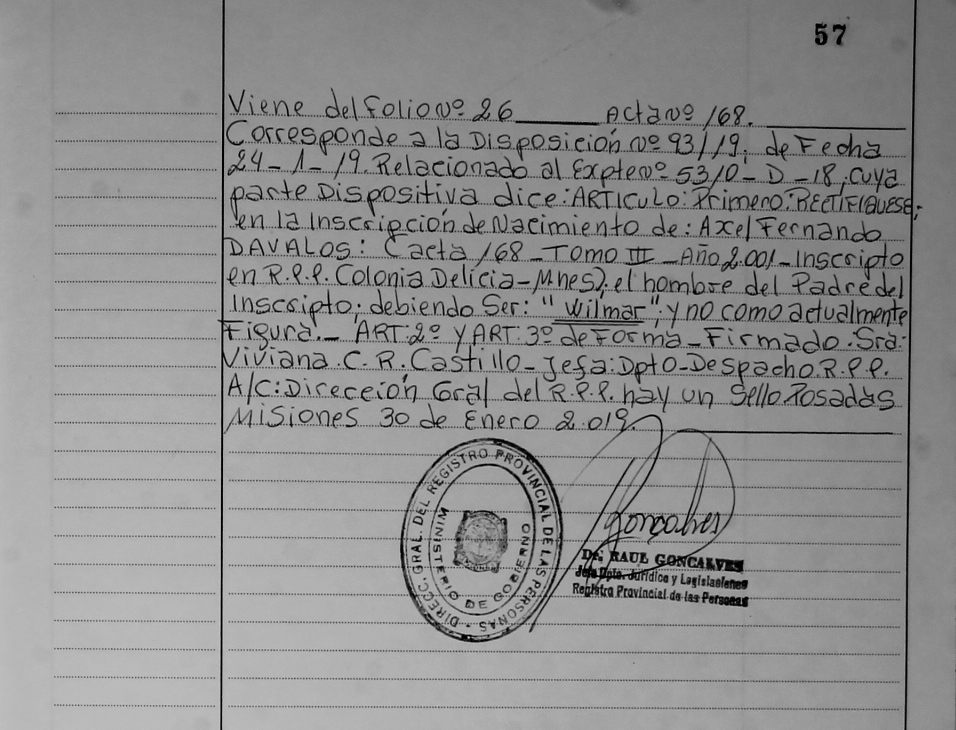 57
Viene del Folio Nº 26 ______ Acta Nº 168.
Corresponde a la Disposición Nº 93/19, de Fecha
24-1-19. Relacionado al Expte Nº 5310-D-18, cuya
parte Dispositiva dice: ARTICULO: Primero: RECTIFIQUESE;
en la Inscripción de Nacimiento de: Axel Fernando
DAVALOS: (acta 168 - TOMO III - Año 2.001 - Inscripto
en R.P.P. Colonia Delicia - Mnes); el hombre del Padre del
Inscripto; debiendo Ser: "Wilmar"; y no como actualmente
Figura. - ART: 2º y ART: 3º de Forma - Firmado: Sra:
Viviana. C. R. Castillo - Jefa: Dpto - Despacho. R.P.P.
A/C: Dirección Gral del R.P.P. hay un Sello. Posadas
Misiones 30 de Enero 2.019.
DIRECC. GRAL. DEL REGISTRO PROVINCIAL DE LAS PERSONAS
MINISTERIO DE GOBIERNO
Rgoncalves
Dr. RAUL GONCALVES
Jefe Dpto. Jurídico y Legislaciones
Registro Provincial de las Personas